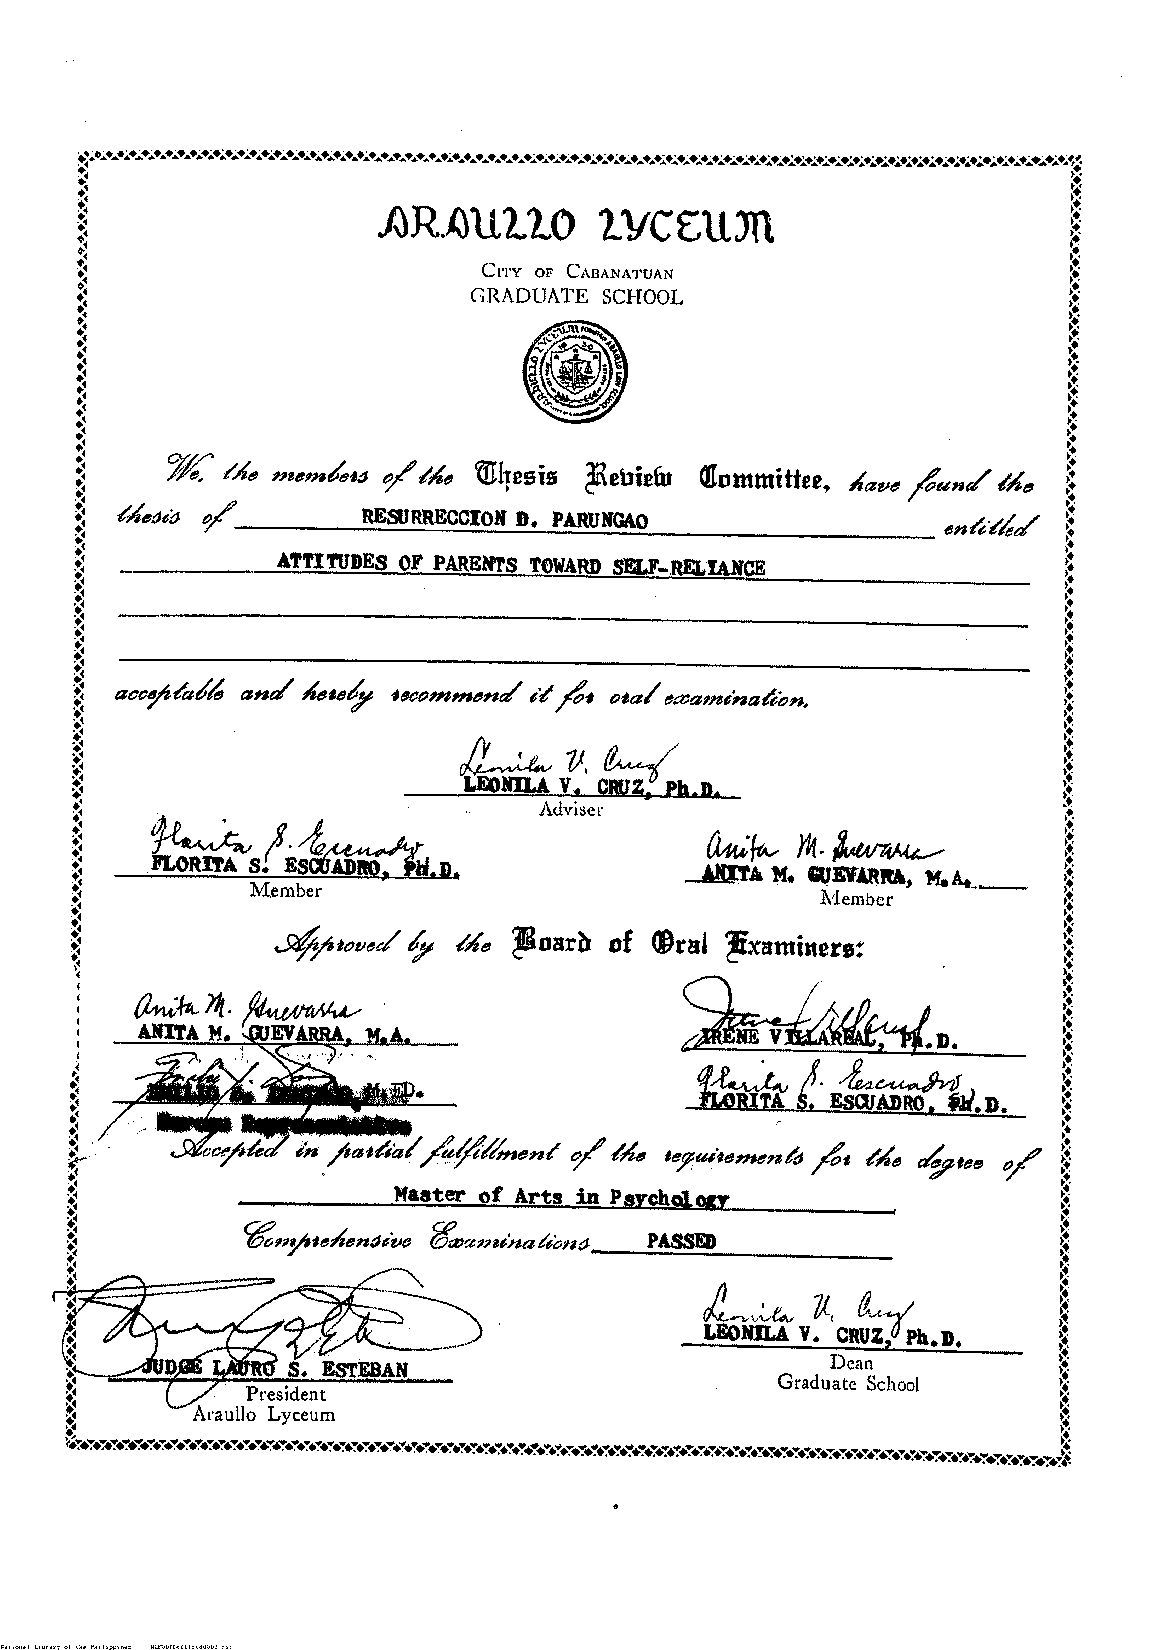 ARAULLO LYCEUM
CITY OF CABANATUAN
GRADUATE SCHOOL
ARAULLO LYCEUM
We, the members of the Thesis Review Committee, have found the
thesis of RESURRECCION D. PARUNGAO entitled
ATTITUDES OF PARENTS TOWARD SELF-RELIANCE
acceptable and hereby recommend it for oral examination.
Leonila V. Cruz
LEONILA V. CRUZ, Ph.D.
Adviser
Florita S. Escuadro
FLORITA S. ESCUADRO, PH.D.
Member
Anita M. Guevarra
ANITA M. GUEVARRA, M.A.
Member
Approved by the Board of Oral Examiners:
Anita M. Guevarra
ANITA M. GUEVARRA, M.A.
Irene Villareal
IRENE VILLAREAL, Ph.D.
M.ED.
Florita S. Escuadro
FLORITA S. ESCUADRO, PH.D.
Bureau Representative
Accepted in partial fulfillment of the requirements for the degree of
Master of Arts in Psychology
Comprehensive Examinations PASSED
JUDGE LAURO S. ESTEBAN
President
Araullo Lyceum
Leonila V. Cruz
LEONILA V. CRUZ, Ph.D.
Dean
Graduate School
National Library of the Philippines